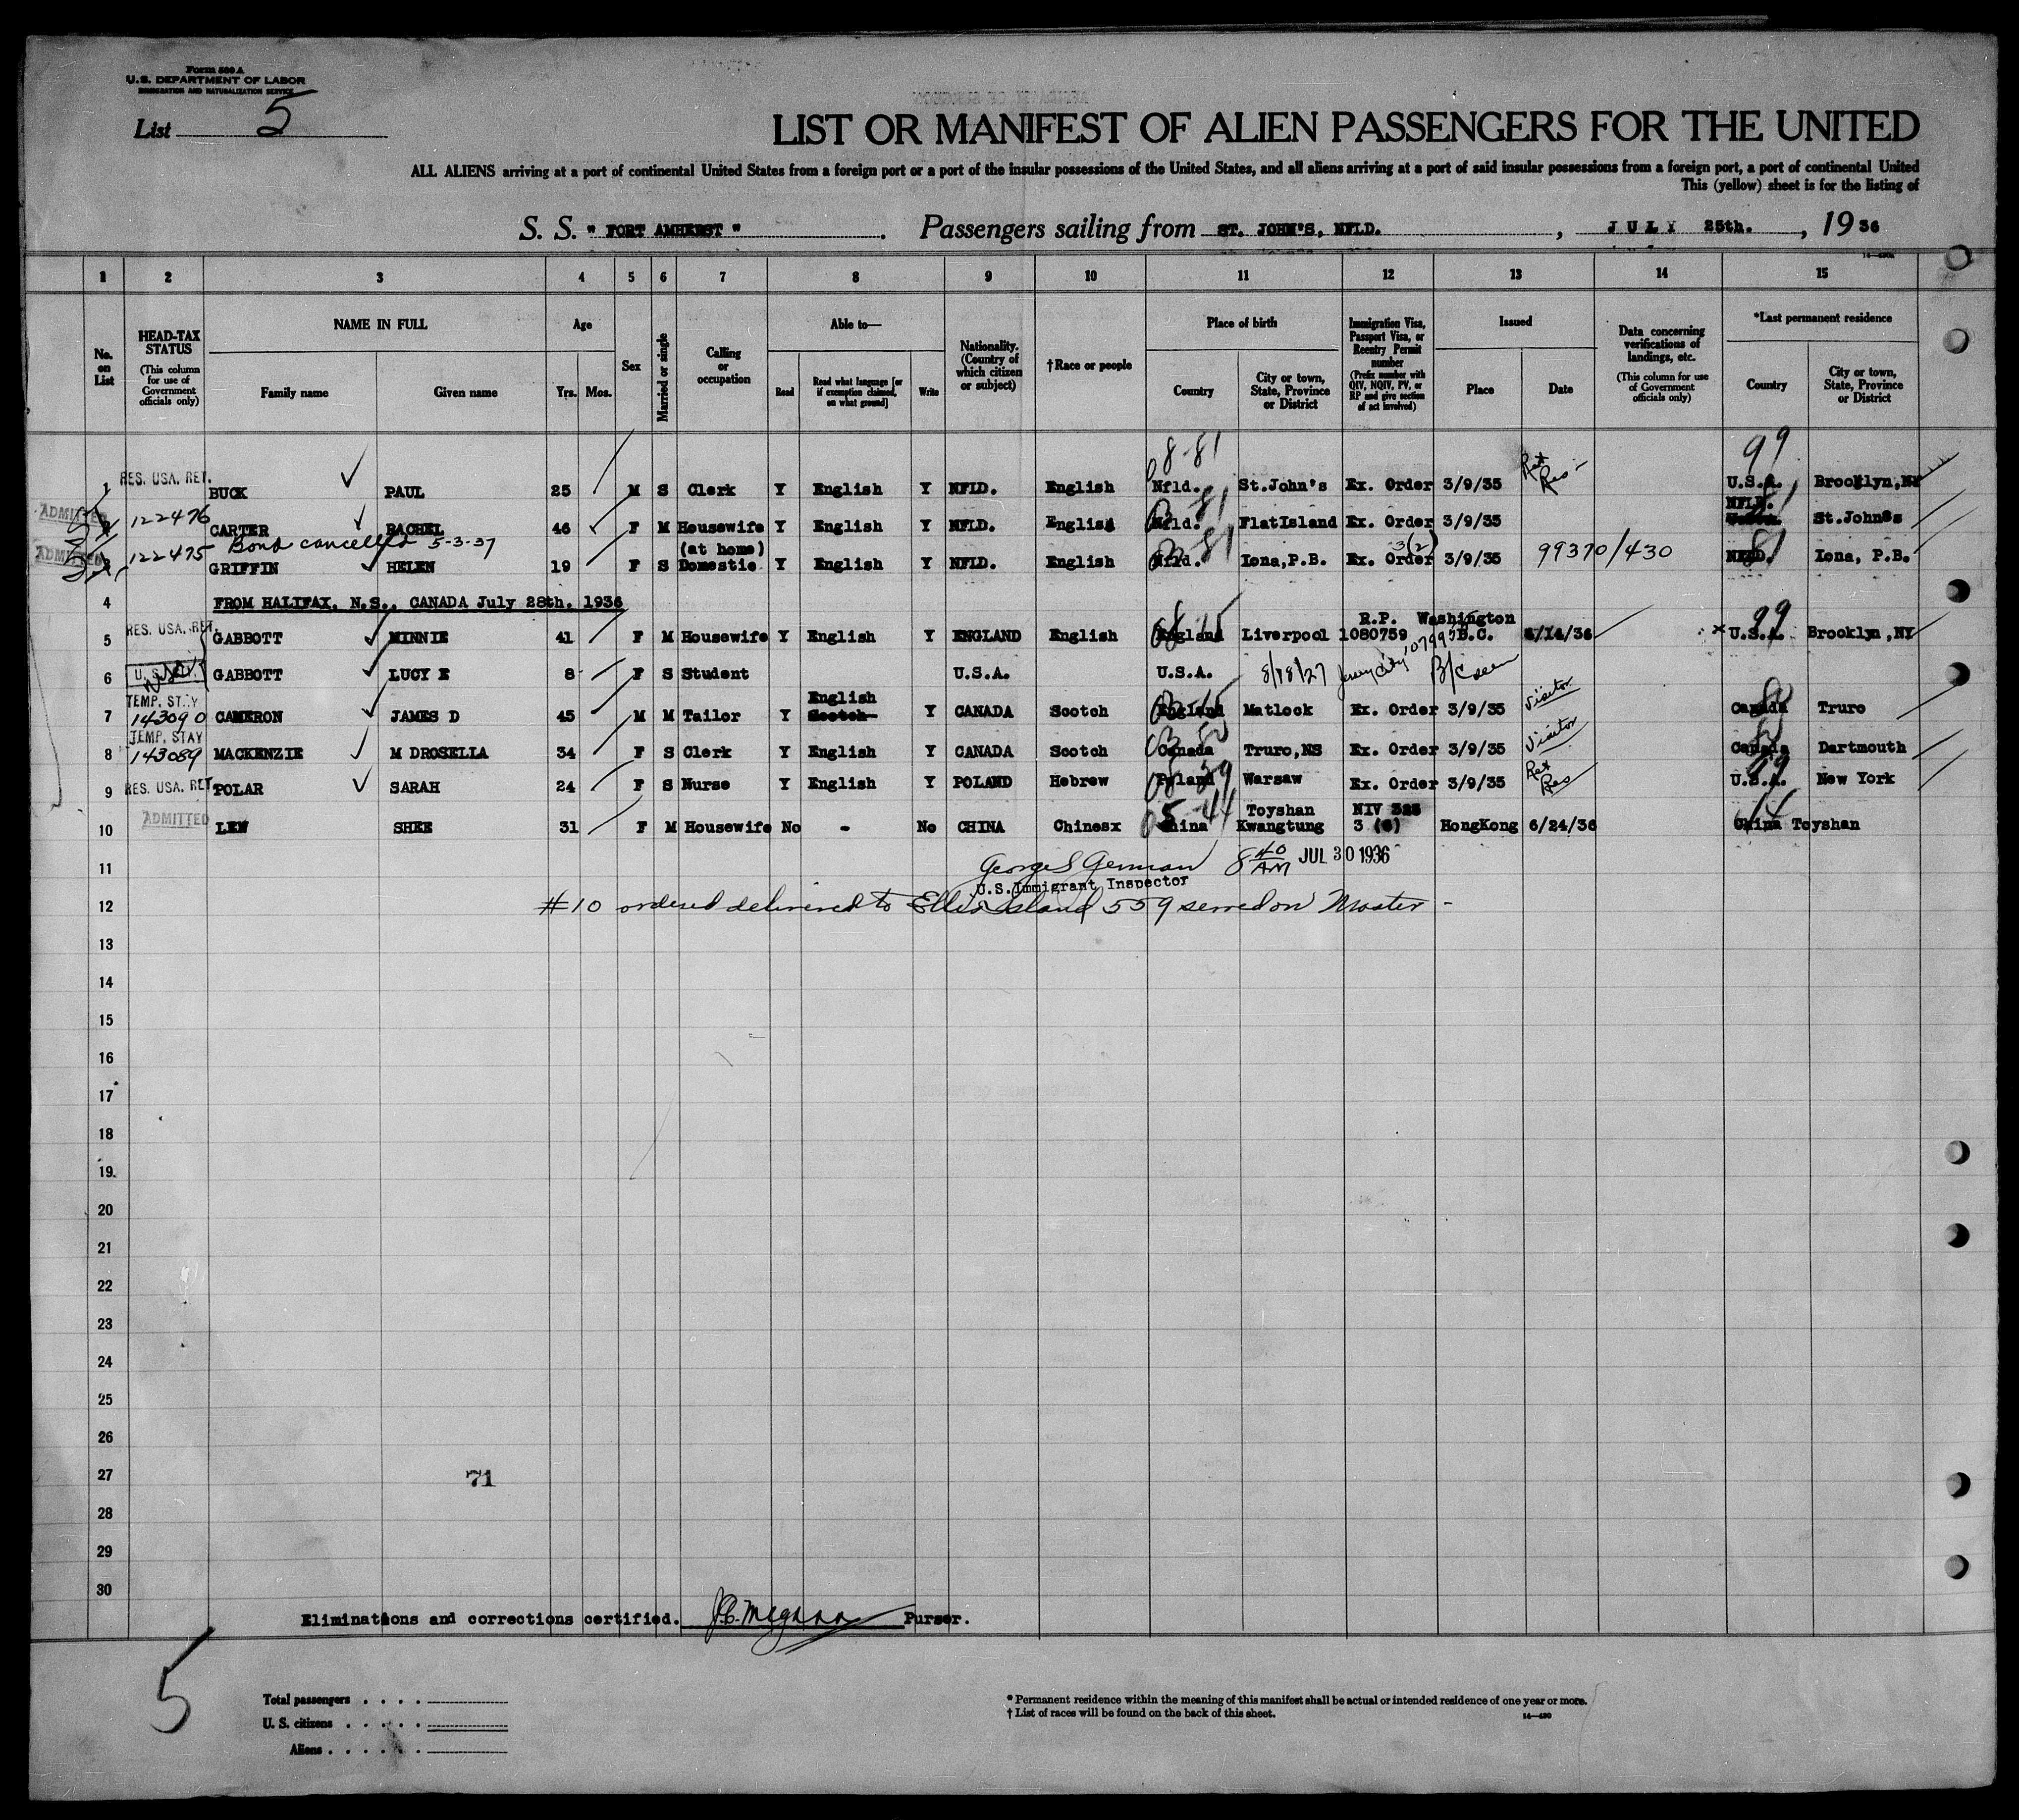 Form 500 A
U.S. DEPARTMENT OF LABOR
IMMIGRATION AND NATURALIZATION SERVICE
List 5
LIST OR MANIFEST OF ALIEN PASSENGERS FOR THE UNITED
ALL ALIENS arriving at a port of continental United States from a foreign port or a port of the insular possessions of the United States, and all aliens arriving at a port of said insular possessions from a foreign port, a port of continental United
This (yellow) sheet is for the listing of
S. S. " FORT AMHERST " . Passengers sailing from ST. JOHN'S, NFLD. , JULY 25th. , 19 36
1 2 3 4 5 6 7 8 9 10 11 12 13 14 15
No. on List
HEAD-TAX STATUS (This column for use of Government officials only)
NAME IN FULL
Family name Given name
Age
Yrs. Mos.
Sex
Married or single
Calling or occupation
Able to—
Read Read what language [or if exemption claimed, on what ground] Write
Nationality. (Country of which citizen or subject)
†Race or people
Place of birth
Country City or town, State, Province or District
Immigration Visa, Passport Visa, or Reentry Permit number (Prefix number with QIV, NQIV, PV, or RP and give section of act involved)
Issued
Place Date
Data concerning verifications of landings, etc. (This column for use of Government officials only)
*Last permanent residence
Country City or town, State, Province or District
8-81 99
1 RES. USA. RET. BUCK PAUL 25 M S Clerk Y English Y NFLD. English Nfld. St.John's Ex. Order 3/9/35 Ret Res U.S.A. Brooklyn,NY
NFLD.
ADMITTED 2 122476 CARTER RACHEL 46 F M Housewife Y English Y NFLD. English Nfld. 81 FlatIsland Ex. Order 3/9/35 St.Johns
Bond cancelled 5-3-37
(at home) 3(2)
ADMITTED 3 122475 GRIFFIN HELEN 19 F S Domestic Y English Y NFLD. English Nfld. 81 Iona,P.B. Ex. Order 3/9/35 99370/430 NFLD. 81 Iona, P.B.
4 FROM HALIFAX, N.S., CANADA July 28th. 1936
R.P. Washington 99
5 RES. USA. RET. GABBOTT MINNIE 41 F M Housewife Y English Y ENGLAND English England Liverpool 1080759 D.C. 5/14/36 U.S.A. Brooklyn,NY
6 GABBOTT LUCY E 8 F S Student U.S.A. U.S.A. 8/18/27 Jersey City B/C seen
TEMP. STAY English
7 143090 CAMERON JAMES D 45 M M Tailor Y Scotch Y CANADA Scotch England Matlock Ex. Order 3/9/35 Visitor Canada Truro
TEMP. STAY
8 143089 MACKENZIE M DROSELLA 34 F S Clerk Y English Y CANADA Scotch Canada Truro,NS Ex. Order 3/9/35 Visitor Canada Dartmouth
9 RES. USA. RET. POLAR SARAH 24 F S Nurse Y English Y POLAND Hebrew Poland Warsaw Ex. Order 3/9/35 Ret Res U.S.A. 99 New York
ADMITTED Toyshan NIV 325
10 LEW SHEE 31 F M Housewife No - No CHINA Chinesx China Kwangtung 3 (6) HongKong 6/24/36 China Toyshan
11 George S German 8 40 AM JUL 30 1936
U.S. Immigrant Inspector
12 #10 ordered delivered to Ellis Island 559 served on Master -
13
14
15
16
17
18
19
20
21
22
23
24
25
26
27 71
28
29
30
Eliminations and corrections certified. Purser.
5
Total passengers . . . .
U. S. citizens . . . . .
Aliens . . . . . .
* Permanent residence within the meaning of this manifest shall be actual or intended residence of one year or more.
† List of races will be found on the back of this sheet.
14—430